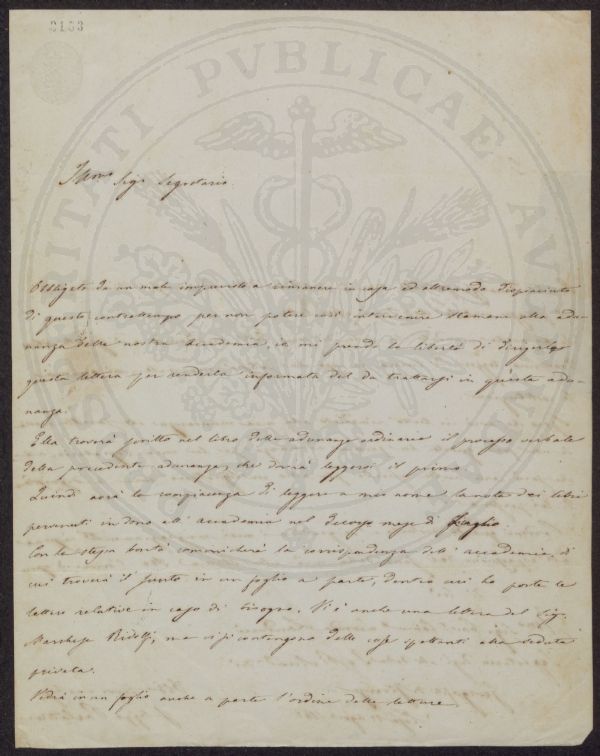 2153
PROSPERITATI PVBLICAE AVGENDAE
Illmo. Sigr. Segretario.
Obbligato da un male improvviso a rimanere in casa ed oltremodo dispiaciuto
di questo contrattempo per non potere così intervenire stamane alla adu-
nanza della nostra Accademia, io mi prendo la libertà di dirigerle
questa lettera per renderla informata del da trattarsi in questa adu-
nanza.
Ella troverà scritto nel libro delle adunanze ordinarie il processo verbale
della precedente adunanza, che dovrà leggersi il primo.
Quindi avrà la compiacenza di leggere a mio nome la nota dei libri
pervenuti in dono all' accademia nel decorso mese di Luglio.
Con la stessa bontà comunicherà la corrispondenza dell' accademia, di
cui troverà il sunto in un foglio a parte, dentro cui ho poste le
lettere relative in caso di bisogno. Vi è anche una lettera del Sigr.
Marchese Ridolfi, ma vi si contengono delle cose spettanti alla seduta
privata.
Vedrà in un foglio anche a parte l'ordine delle letture